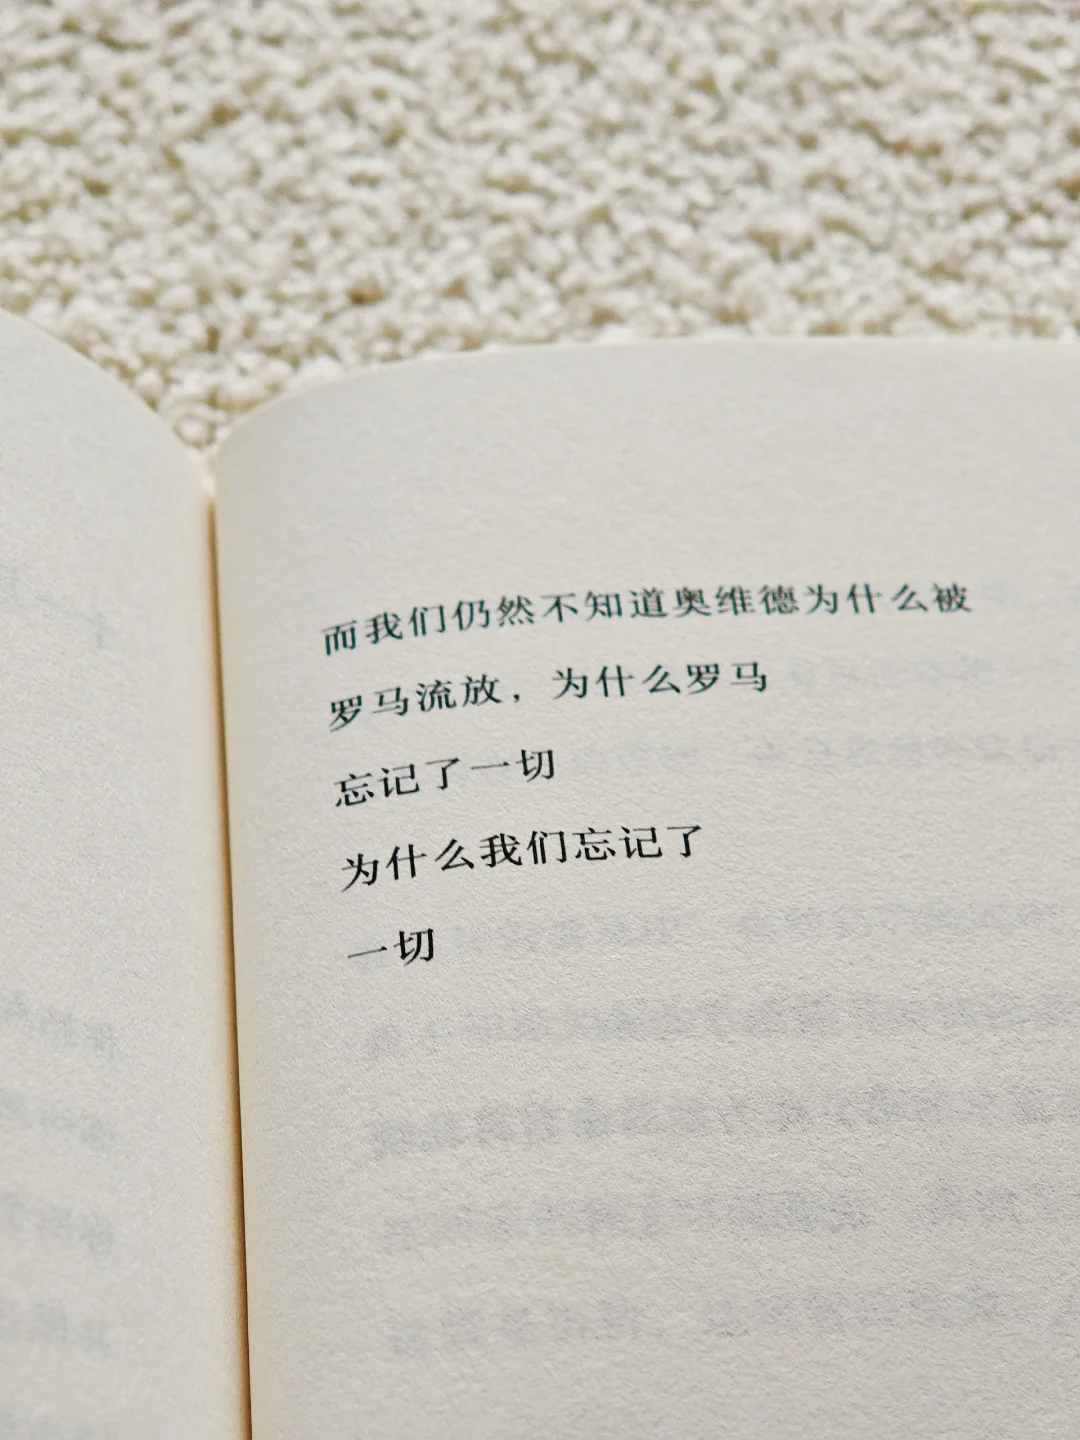 而我们仍然不知道奥维德为什么被
罗马流放，为什么罗马
忘记了一切
为什么我们忘记了
一切